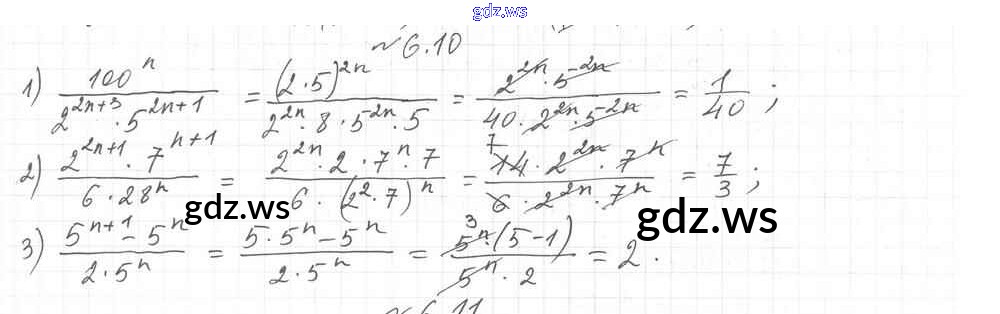 gdz.ws
№6.10
1) 100^n / (2^(2n+3) · 5^(2n+1)) = (2·5)^(2n) / (2^(2n) · 8 · 5^(-2n) · 5) = (2^(2n) · 5^(-2n)) / (40 · 2^(2n) · 5^(-2n)) = 1/40 ;
2) (2^(2n+1) · 7^(n+1)) / (6 · 28^n) = (2^(2n) · 2 · 7^n · 7) / (6 · (2^2 · 7)^n) = (14 · 2^(2n) · 7^n) / (6 · 2^(2n) · 7^n) = 7/3 ;
gdz.ws gdz.ws
3) (5^(n+1) - 5^n) / (2 · 5^n) = (5 · 5^n - 5^n) / (2 · 5^n) = (5^n · (5-1)) / (5^n · 2) = 2 .
№6.11